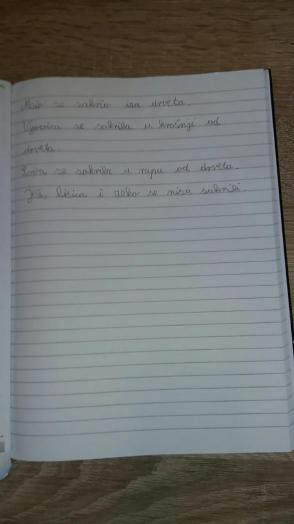 Miš se sakrio iza drveta.
Vjeverica se sakrila u krošnji od
drveta.
Sova se sakrila u rupu od drveta.
Jež, lisica i vuk se nisu sakrili.